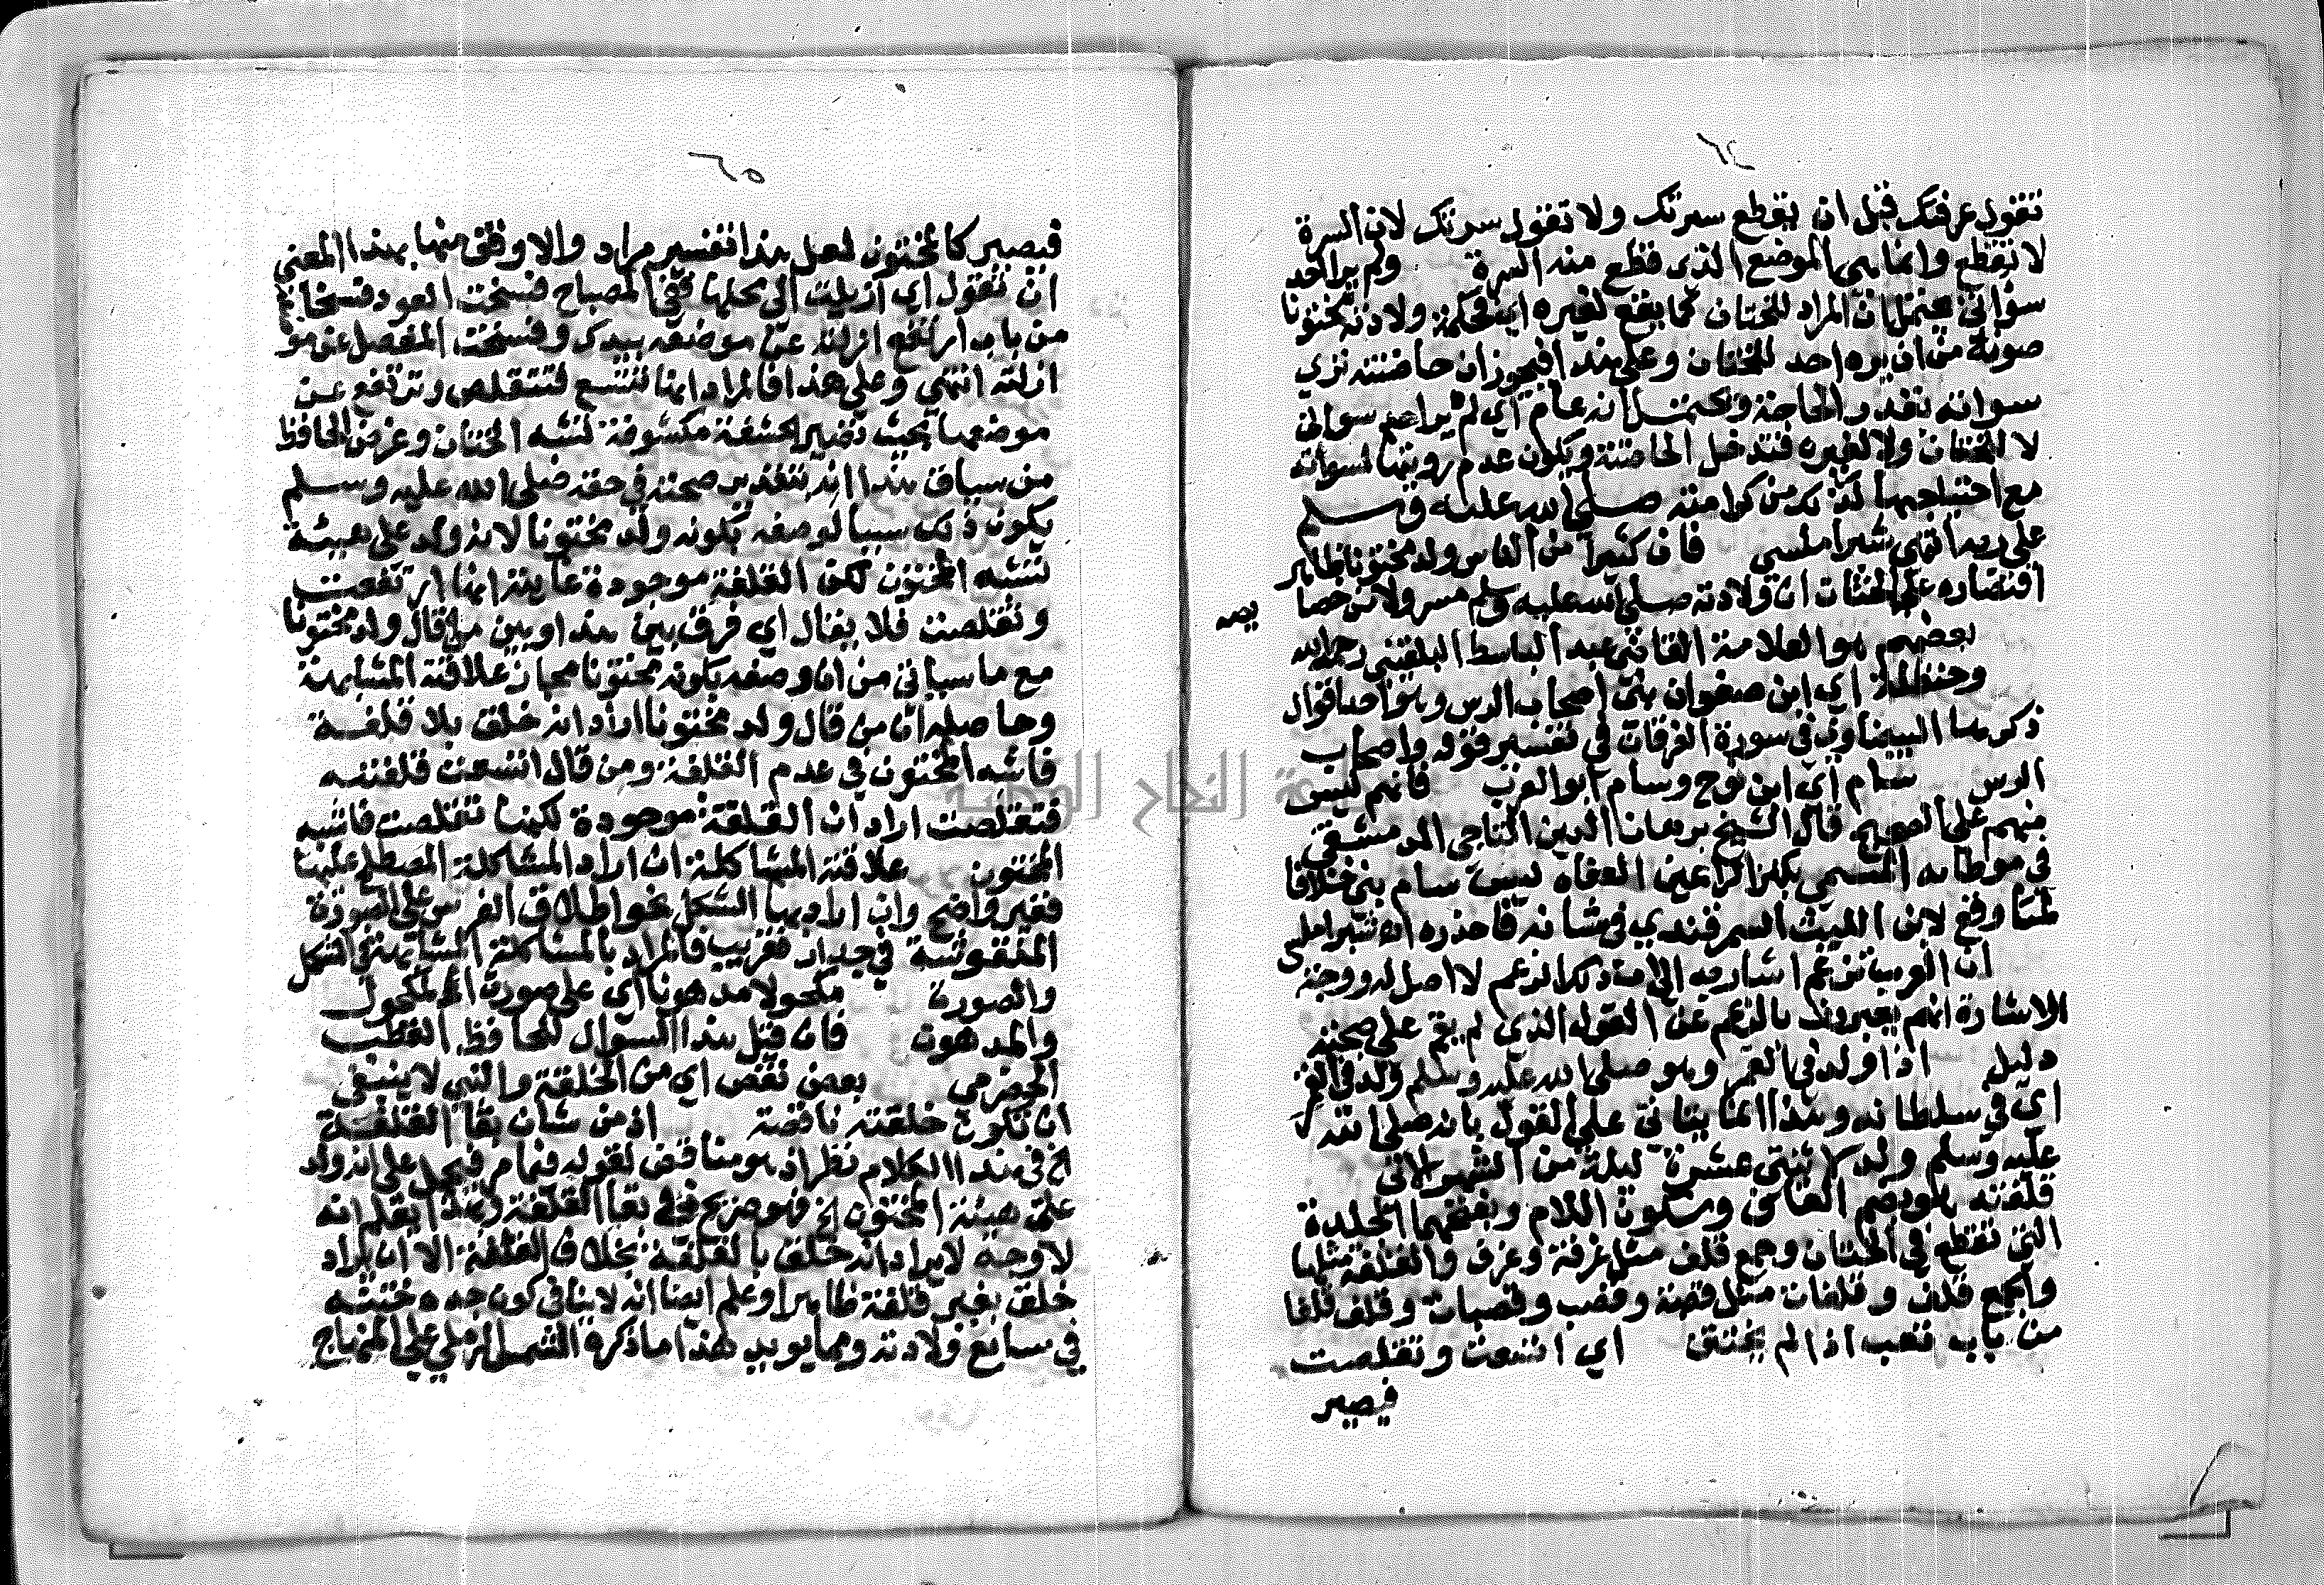 ٢٤
تقول عرفتك قبل ان يقطع سرتك ولا تقول سرتك لان السرة
لا تقطع وانما هي الموضع الذي قطع منه السرة ولم ير احد
سؤاتي يحتمل ان المراد للختان كما يقع لغيره اي فحكمة ولادته مختونا
صونه من ان يره احد للختان وعلى هذا فيجوز ان حاضنته ترى
سوأته بقدر الحاجة ويحتمل انه عام اي لم ير احد سوأتي
لا للختان ولا لغيره فتدخل الحاضنة ويكون عدم رويتها لسوأته
مع احتياجها لذلك من كرامته صلى الله عليه وسلم
على ربه انتهى شبراملسي فان كثيرا من الناس ولد مختونا ظاهر
اقتصاره على الختان ان ولادته صلى الله عليه وسلم مسرورا من خصا
يصه
بعضهم هو العلامة القاضي عبد الباسط البلقيني رحمه الله
وحنظلة اي ابن صفوان نبي اصحاب الرس وهو احد اقوال
ذكرها البيضاوي في سورة الفرقان في تفسير قوله واصحاب
الرس سام اي ابن نوح وسام ابو العرب فانه ليس
منهم على الصحيح قال الشيخ برهان الدين الناجي الدمشقي
في مولده المسمى بكنز الراغبين العفاه ليس سام بني خلافا
لما وقع لابن الليث السمرقندي في شانه فاحذره اه شبراملسي
ان العرب تزعم اشار به الى ان ذلك الزعم لا اصل له ووجه
الاشارة انهم يعبرون بالزعم عن القول الذي لم يقم على صحته
دليل اذا ولد في القمر وهو صلى الله عليه وسلم ولد في القمر
اي في سلطانه وهذا انما ياتي على القول بانه صلى الله
عليه وسلم ولد لاثنتي عشرة ليلة من الشهر لا في
قلفته هو بضم القاف وسكون اللام وبفتحهما الجلدة
التي تقطع في الختان وجمع قلف مثل غرفة وغرف والقلفة مثلها
والجمع قلف وقلفات مثل قصبة وقصب وقصبات وقلف قلفا
من باب تعب اذا لم يختتن اي اتسعت وتقلصت
فيصير
٢٥
فيصير كالمختون لعل هذا تفسير مراد والا وفق منها بهذا المعنى
ان تقول اي ازيلت الى محلها ففي المصباح فسخت العود فسخا
من باب ارتفع ازلته عن موضعه بيدك وفسخت المفصل عن مو
ازلته انتهى وعلى هذا فالمراد انها تتسع فتتقلص وترتفع عن
موضعها بحيث تصير الحشفة مكشوفة لشبه الختان وغرض الحافظ
من سياق هذا انه بتقدير صحته في حقه صلى الله عليه وسلم
يكون ذلك سببا لوصفه بكونه ولد مختونا لانه ولد على هيئة
تشبه المختون لكن القلفة موجودة غايته انها ارتفعت
وتقلصت فلا يقال اي فرق بين هذا وبين من قال ولد مختونا
مع ما سياتي من ان وصفه بكونه مختونا مجاز علاقته المشابهة
وحاصله ان من قال ولد مختونا اراد انه خلق بلا قلفة
فاشبه المختون في عدم القلفة ومن قال اتسعت قلفته
فتقلصت اراد ان القلفة موجودة لكنها تقلصت فاشبه
المختون علاقته المشاكلة ان اراد المشاكلة المصطلح عليها
فغير واضح وان اراد بها الشكل نحو اطلاق الفرس على الصورة
المنقوشة في جدار فقريب فالمراد بالمشاكلة المشابهة في الشكل
والصورة مكحولا مدهونا اي على صورة المكحول
والمدهون فان قيل هذا السوال للحافظ القطب
الحضرمي بعض نقص اي من الخلقة والنبي لا ينبغي
ان تكون خلقته ناقصة اذ من شان بقا القلفة
الخ في هذا الكلام نظر اذ هو مناقض لقوله فيما مر فيحمل على انه ولد
على هيئة المختون الخ فهو صريح في بقا القلفة وبهذا يعلم انه
لا وجه لايراد انه خلق بالقلفة بخلاف القلفة الا ان يراد
خلق بغير قلفة ظاهرا وعلم ايضا انه لا ينافي كون جده ختنه
في سابع ولادته ومما يويد هذا ما ذكره الشمس الرملي على المنهاج